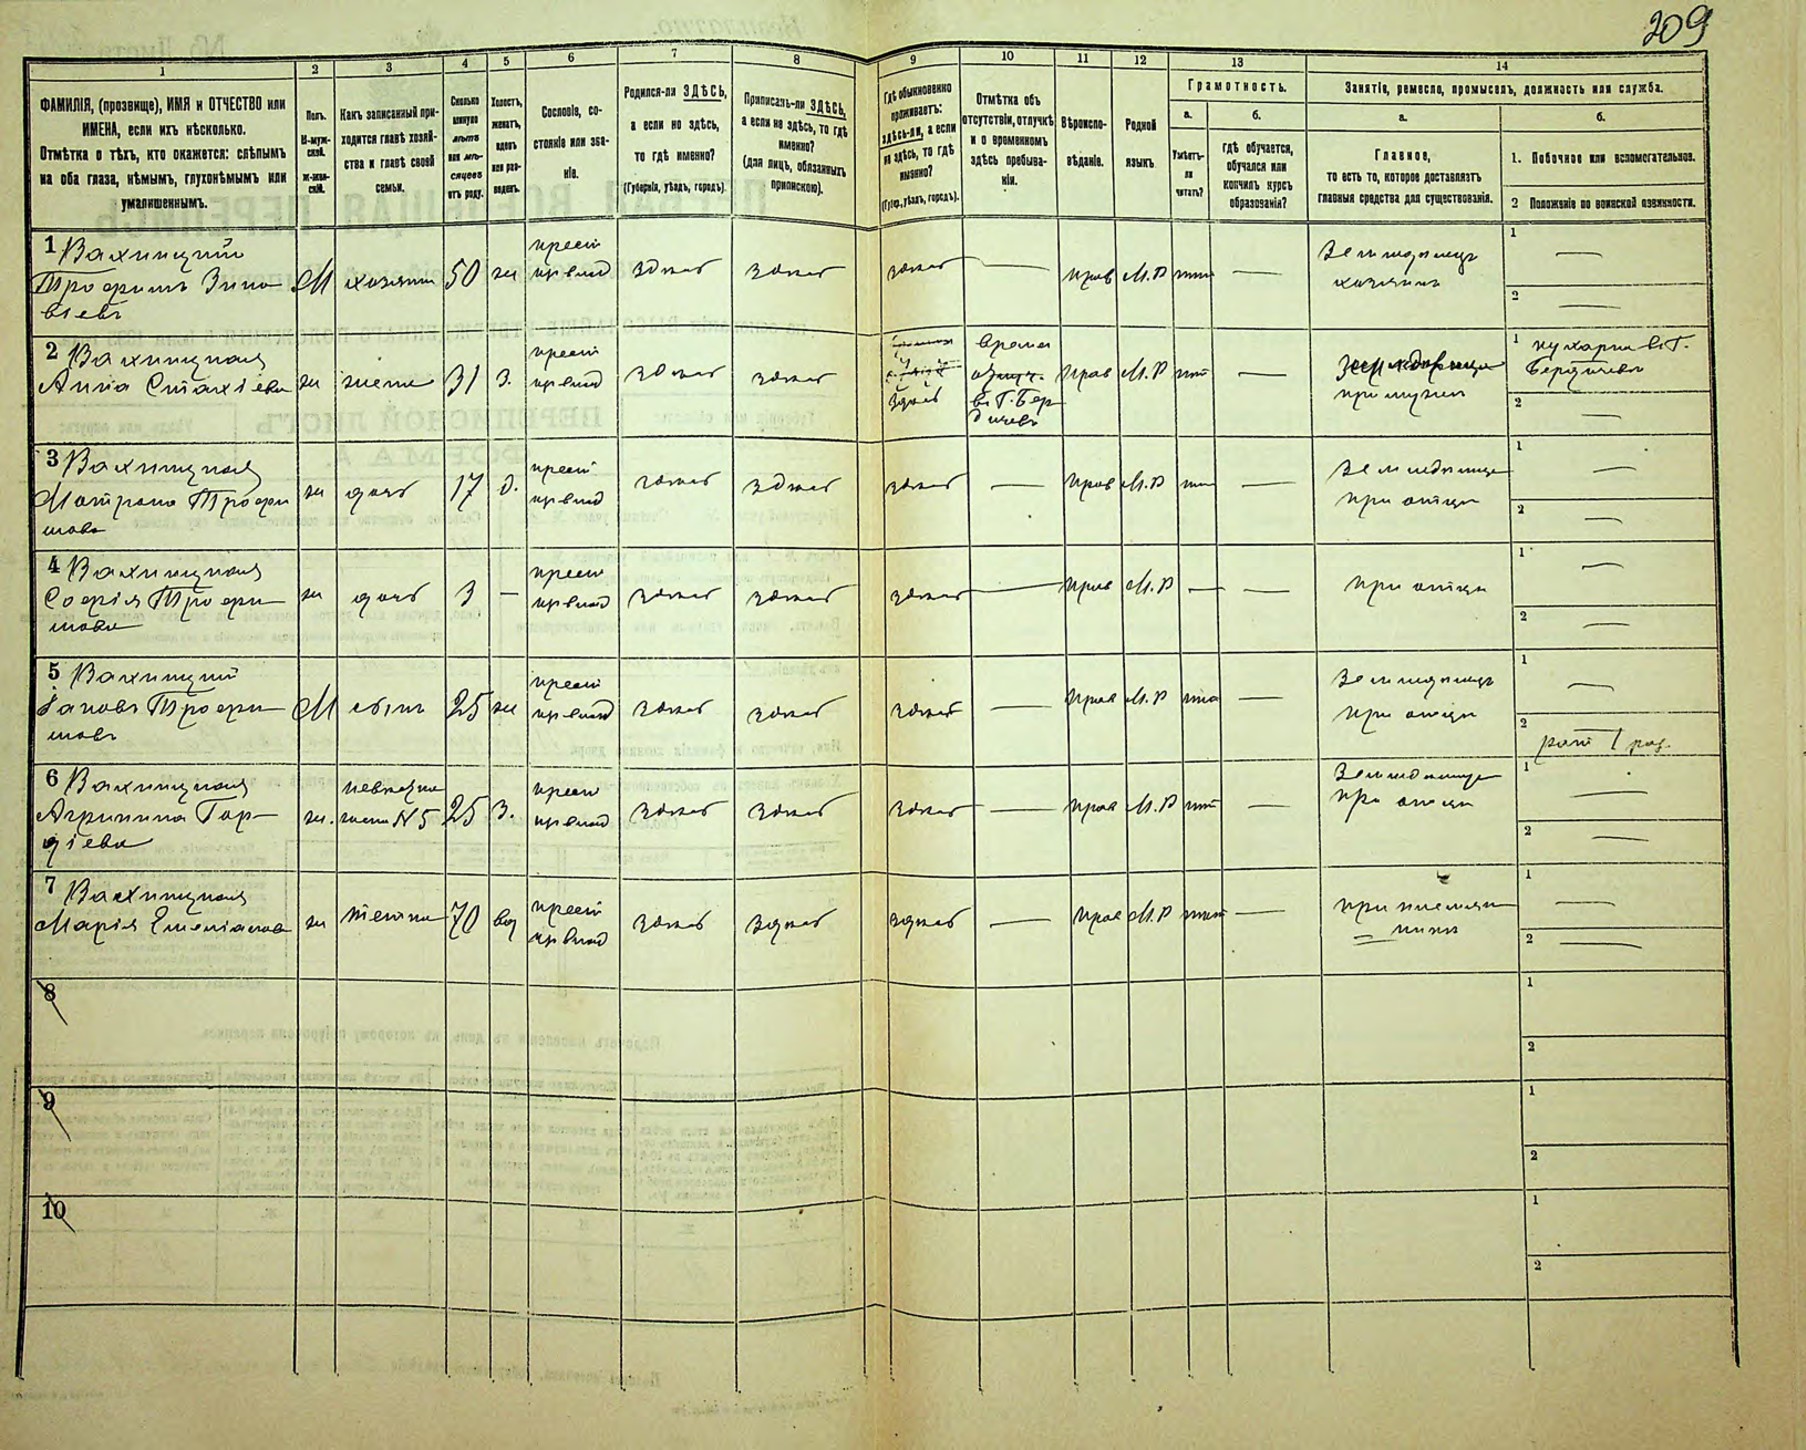 209
1 2 3 4 5 6 7 8 9 10 11 12 13 14
ФАМИЛІЯ, (прозвище), ИМЯ и ОТЧЕСТВО или
ИМЕНА, если ихъ нѣсколько.
Отмѣтка о тѣхъ, кто окажется: слѣпымъ
на оба глаза, нѣмымъ, глухонѣмымъ или
умалишеннымъ.
Полъ.
М-муж-
ской.
Ж-жен-
скій.
Какъ записанный при-
ходится главѣ хозяй-
ства и главѣ своей
семьи.
Сколько
минуло
лѣтъ
или мѣ-
сяцевъ
отъ роду.
Холостъ,
женатъ,
вдовъ
или раз-
веденъ.
Сословіе, со-
стояніе или зва-
ніе.
Родился-ли ЗДѢСЬ,
а если не здѣсь,
то гдѣ именно?
(Губернія, уѣздъ, городъ).
Приписанъ-ли ЗДѢСЬ,
а если не здѣсь, то гдѣ
именно?
(для лицъ, обязанныхъ
припискою).
Гдѣ обыкновенно
проживаетъ:
здѣсь-ли, а если
не здѣсь, то гдѣ
именно?
(Губер., уѣздъ, городъ).
Отмѣтка объ
отсутствіи, отлучкѣ
и о временномъ
здѣсь пребыва-
ніи.
Вѣроиспо-
вѣданіе.
Родной
языкъ.
Грамотность.
а.
Умѣетъ-
ли
читать?
б.
гдѣ обучается,
обучался или
кончилъ курсъ
образованія?
Занятіе, ремесло, промыселъ, должность или служба.
а.
Главное,
то есть то, которое доставляетъ
главныя средства для существованія.
б.
1. Побочное или вспомогательное.
2 Положеніе по воинской повинности.
1 Вахницкій
Трофимъ Зино
віевъ
М хозяинъ 50 ж
здѣсь здѣсь здѣсь — прав М.Р —
Земледѣлецъ
хозяинъ
1 —
2 —
2 Вахницкая
Анна Стахіева
ж жена 31 з.
здѣсь здѣсь
здѣсь
въ Г. Бер
дичевъ
прав М.Р —
при мужѣ
1 кухарка въ Г.
Бердичевѣ
2 —
3 Вахницкая
Матрона Трофи
мова
ж дочь 17 д.
здѣсь здѣсь здѣсь — прав М.Р —
при отцѣ
1 —
2 —
4 Вахницкая
Софія Трофи
мова
ж дочь 3 —
здѣсь здѣсь здѣсь — прав М.Р — —
при отцѣ
1 —
2 —
5 Вахницкій
Іаковъ Трофи
мовъ
М сынъ 25 ж
здѣсь здѣсь здѣсь — прав М.Р —
Земледѣлецъ
при отцѣ
1 —
2 рат 1 раз.
6 Вахницкая
Агрипина Гор
діева
ж. невѣстка
жена N5
25 З.
здѣсь здѣсь здѣсь — прав М.Р —
при отцѣ
1 —
2 —
7 Вахницкая
Марія
ж 70 вд
здѣсь здѣсь здѣсь — прав М.Р —
при племян
никѣ
1 —
2 —
8
1
2
9
1
2
10
1
2